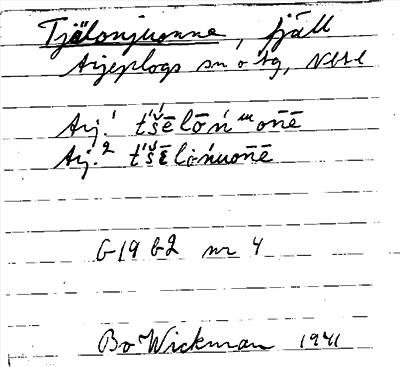 Tjålonjuonne, fjäll
Arjeplogs sn o tg, Vbtl
Arj.¹ t'š́ēlōń ᵘońē
Arj.² t'š́ēlōńuońē
G 19 b2 nr 4
Bo Wickman 1941